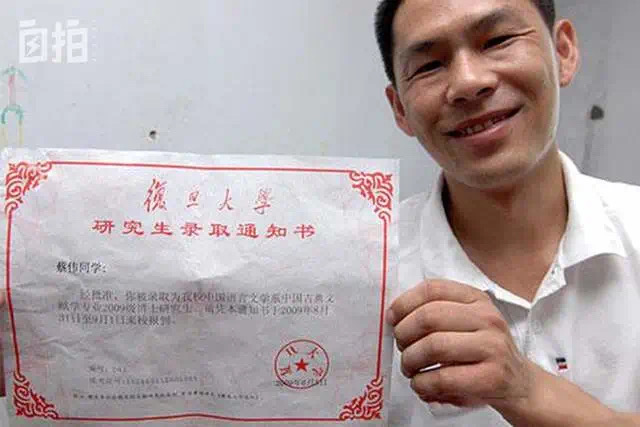 自拍
復旦大學
研究生录取通知书
蔡伟同学：
经批准，你被录取为我校中国语言文学系中国古典文
献学专业2009级博士研究生。请凭本通知书于2009年8月
31日至9月1日来校报到。
编号：
2009年6月